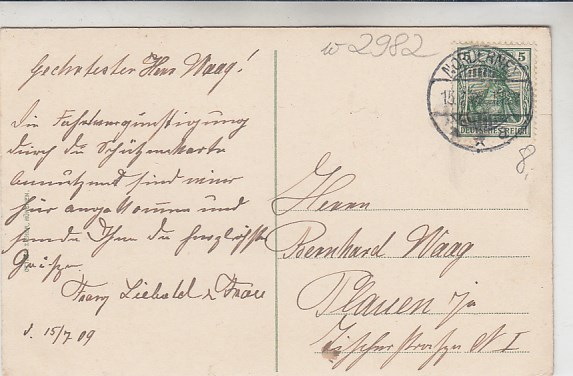 w 2982
NORDERNEY
5
DEUTSCHES REICH
8.
Geehrtester Herr Waag!
Die Fahrtvergünstigung
durch die Schützenkarte
benutzend sind wir
hier angekommen und
senden Ihnen die herzlichsten
Grüße
Franz Liebold & Frau
d. 15/7 09
Herrn
Bernhard Waag
Plauen i/a
Fischerstraße N I